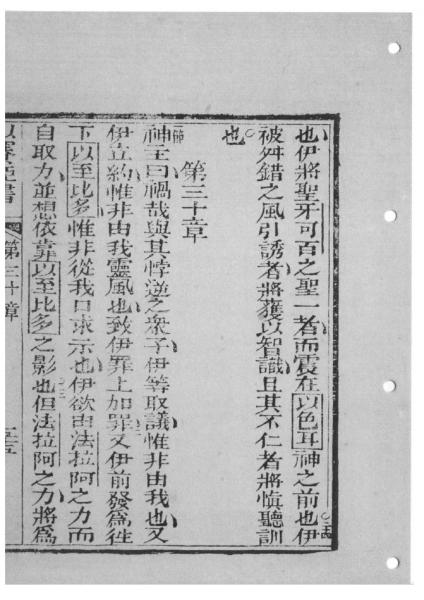 也伊將聖牙可百之聖一者而震在以色耳神之前也伊
被舛錯之風引誘者將獲以智識且其不仁者將慎聽訓
也
第三十章
神主曰禍哉與其悖逆之衆子伊等取議惟非由我也又
伊立約惟非由我靈風也致伊罪上加罪又伊前發爲徃
下以至比多惟非從我口求示也伊欲由法拉阿之力而
自取力並想依靠以至比多之影也但法拉阿之力將爲
第三十章